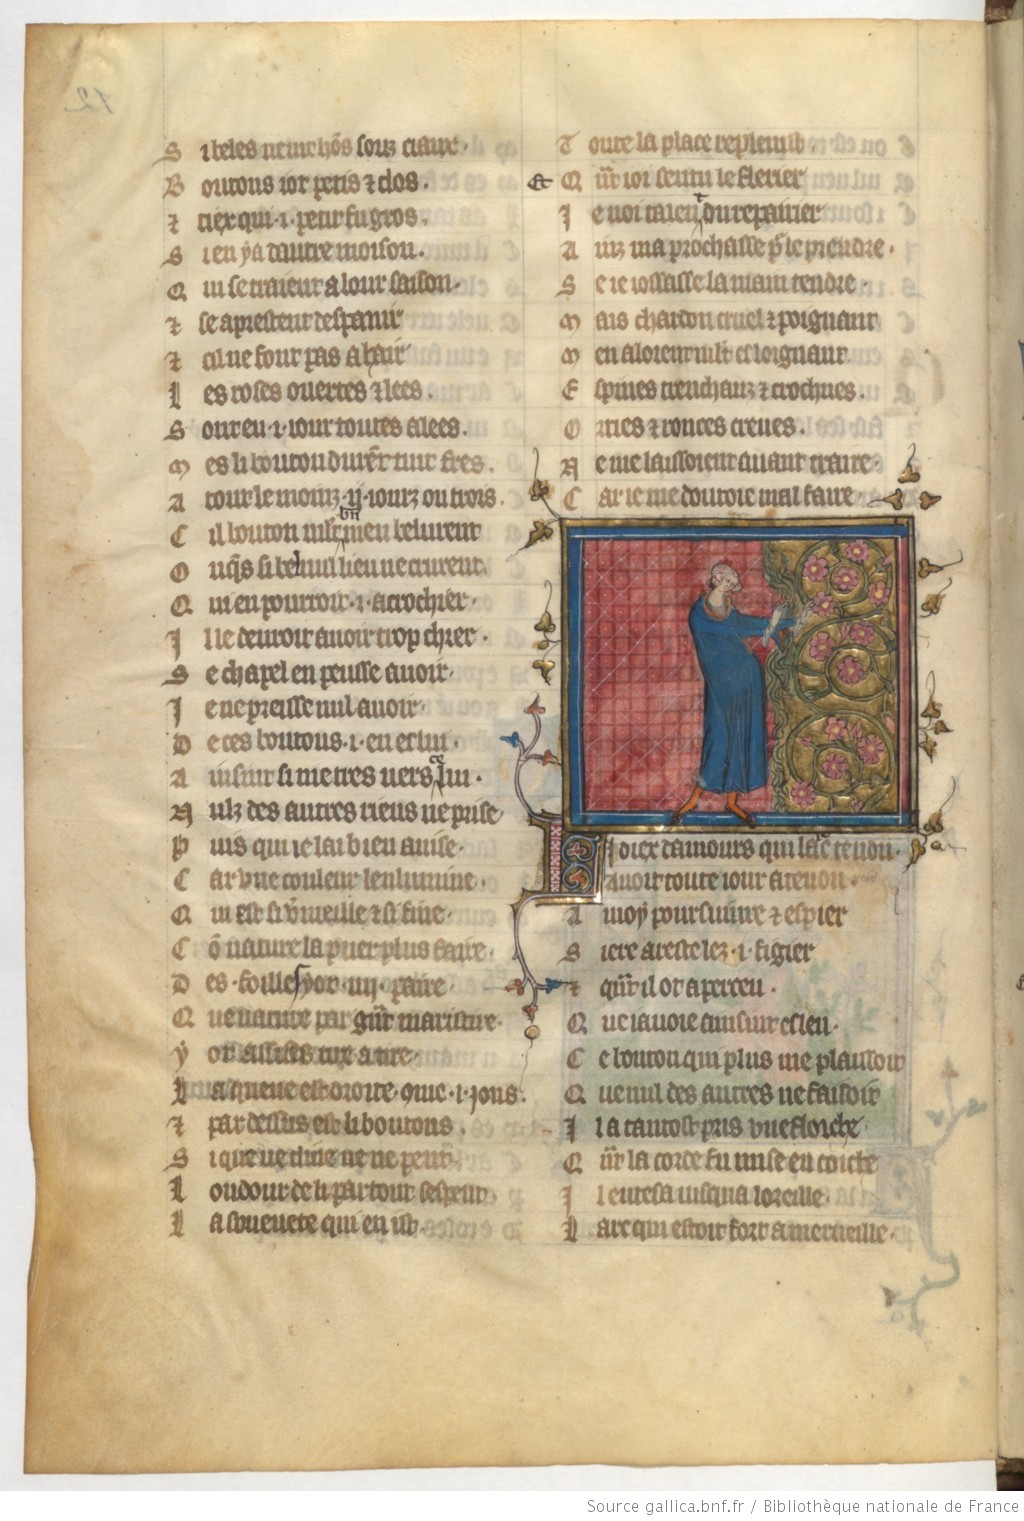 12
S i beles neut hõs souz ciaux.
B outons iot petis ⁊ clos.
⁊ tiex qui .i. petit fu gros.
S i en ÿ a dautre moison.
Q ui se traient a lour saison.
⁊ se aprestent despanir
⁊ cil ne font pas a hair
L es roses ouertes ⁊ lees.
S ont en .i. iour toutes alees.
M es li bouton durẽt tuit fres.
A tout le moinz .ij. iourz ou trois.
C il bouton mlt bñ men belurent
O nq̃s si bel nul lieu ne crurent
Q ui en porroit .i. acrochier.
I l le deuroit auoir trop chier.
S e chapel en peusse auoir.
I e ne preisse nul auoir.
D e ces boutons .i. en eslui.
A insint si metres uers ce lui.
N ulz des autres riens ne prise
P uis qui ie lai bien auise.
C ar vne couleur lenlumine.
Q ui est si v̾meille ⁊ si fine.
C õ nature la puet plus faire.
D es foilles y ot .iiij. paire
Q ue nature par gñt maistrire.
Y ot assises tire a tire.
L a queue est droite que .i. jons.
⁊ par dessus est li boutons.
S i que ne cline ne ne pent.
L oudour de li par tout sespent
L a soueuete qui en ist.
T oute la place replenist.
et Q ñt ioi sentu le flerier
I e noi talent du repairier
A inz ma prochasse p̃ le prendre.
S e ie iossasse la main tendre.
M ais chardon cruel ⁊ poignant
M en aloient mlt esloignant
E spines trenchanz ⁊ crochues.
O rties ⁊ ronces creues.
N e me laissoient auant traire.
C ar ie me doutoie mal faire
L I diex damours qui larc tendu.
A auoit toute iour atendu.
A moÿ poursuiure ⁊ espier
S iere arestelez .i. figier
⁊ qñt il ot aperceu.
Q ue iauoie ainsint esleu.
C e bouton qui plus me plaisoit
Q ue nul des autres ne faisoit
I l a tantost pris vne floiche
Q ñt la corde fu mise en coiche
I l entesa iusqua loreille.
L arc qui estoit fort a merueille.
Source gallica.bnf.fr / Bibliothèque nationale de France